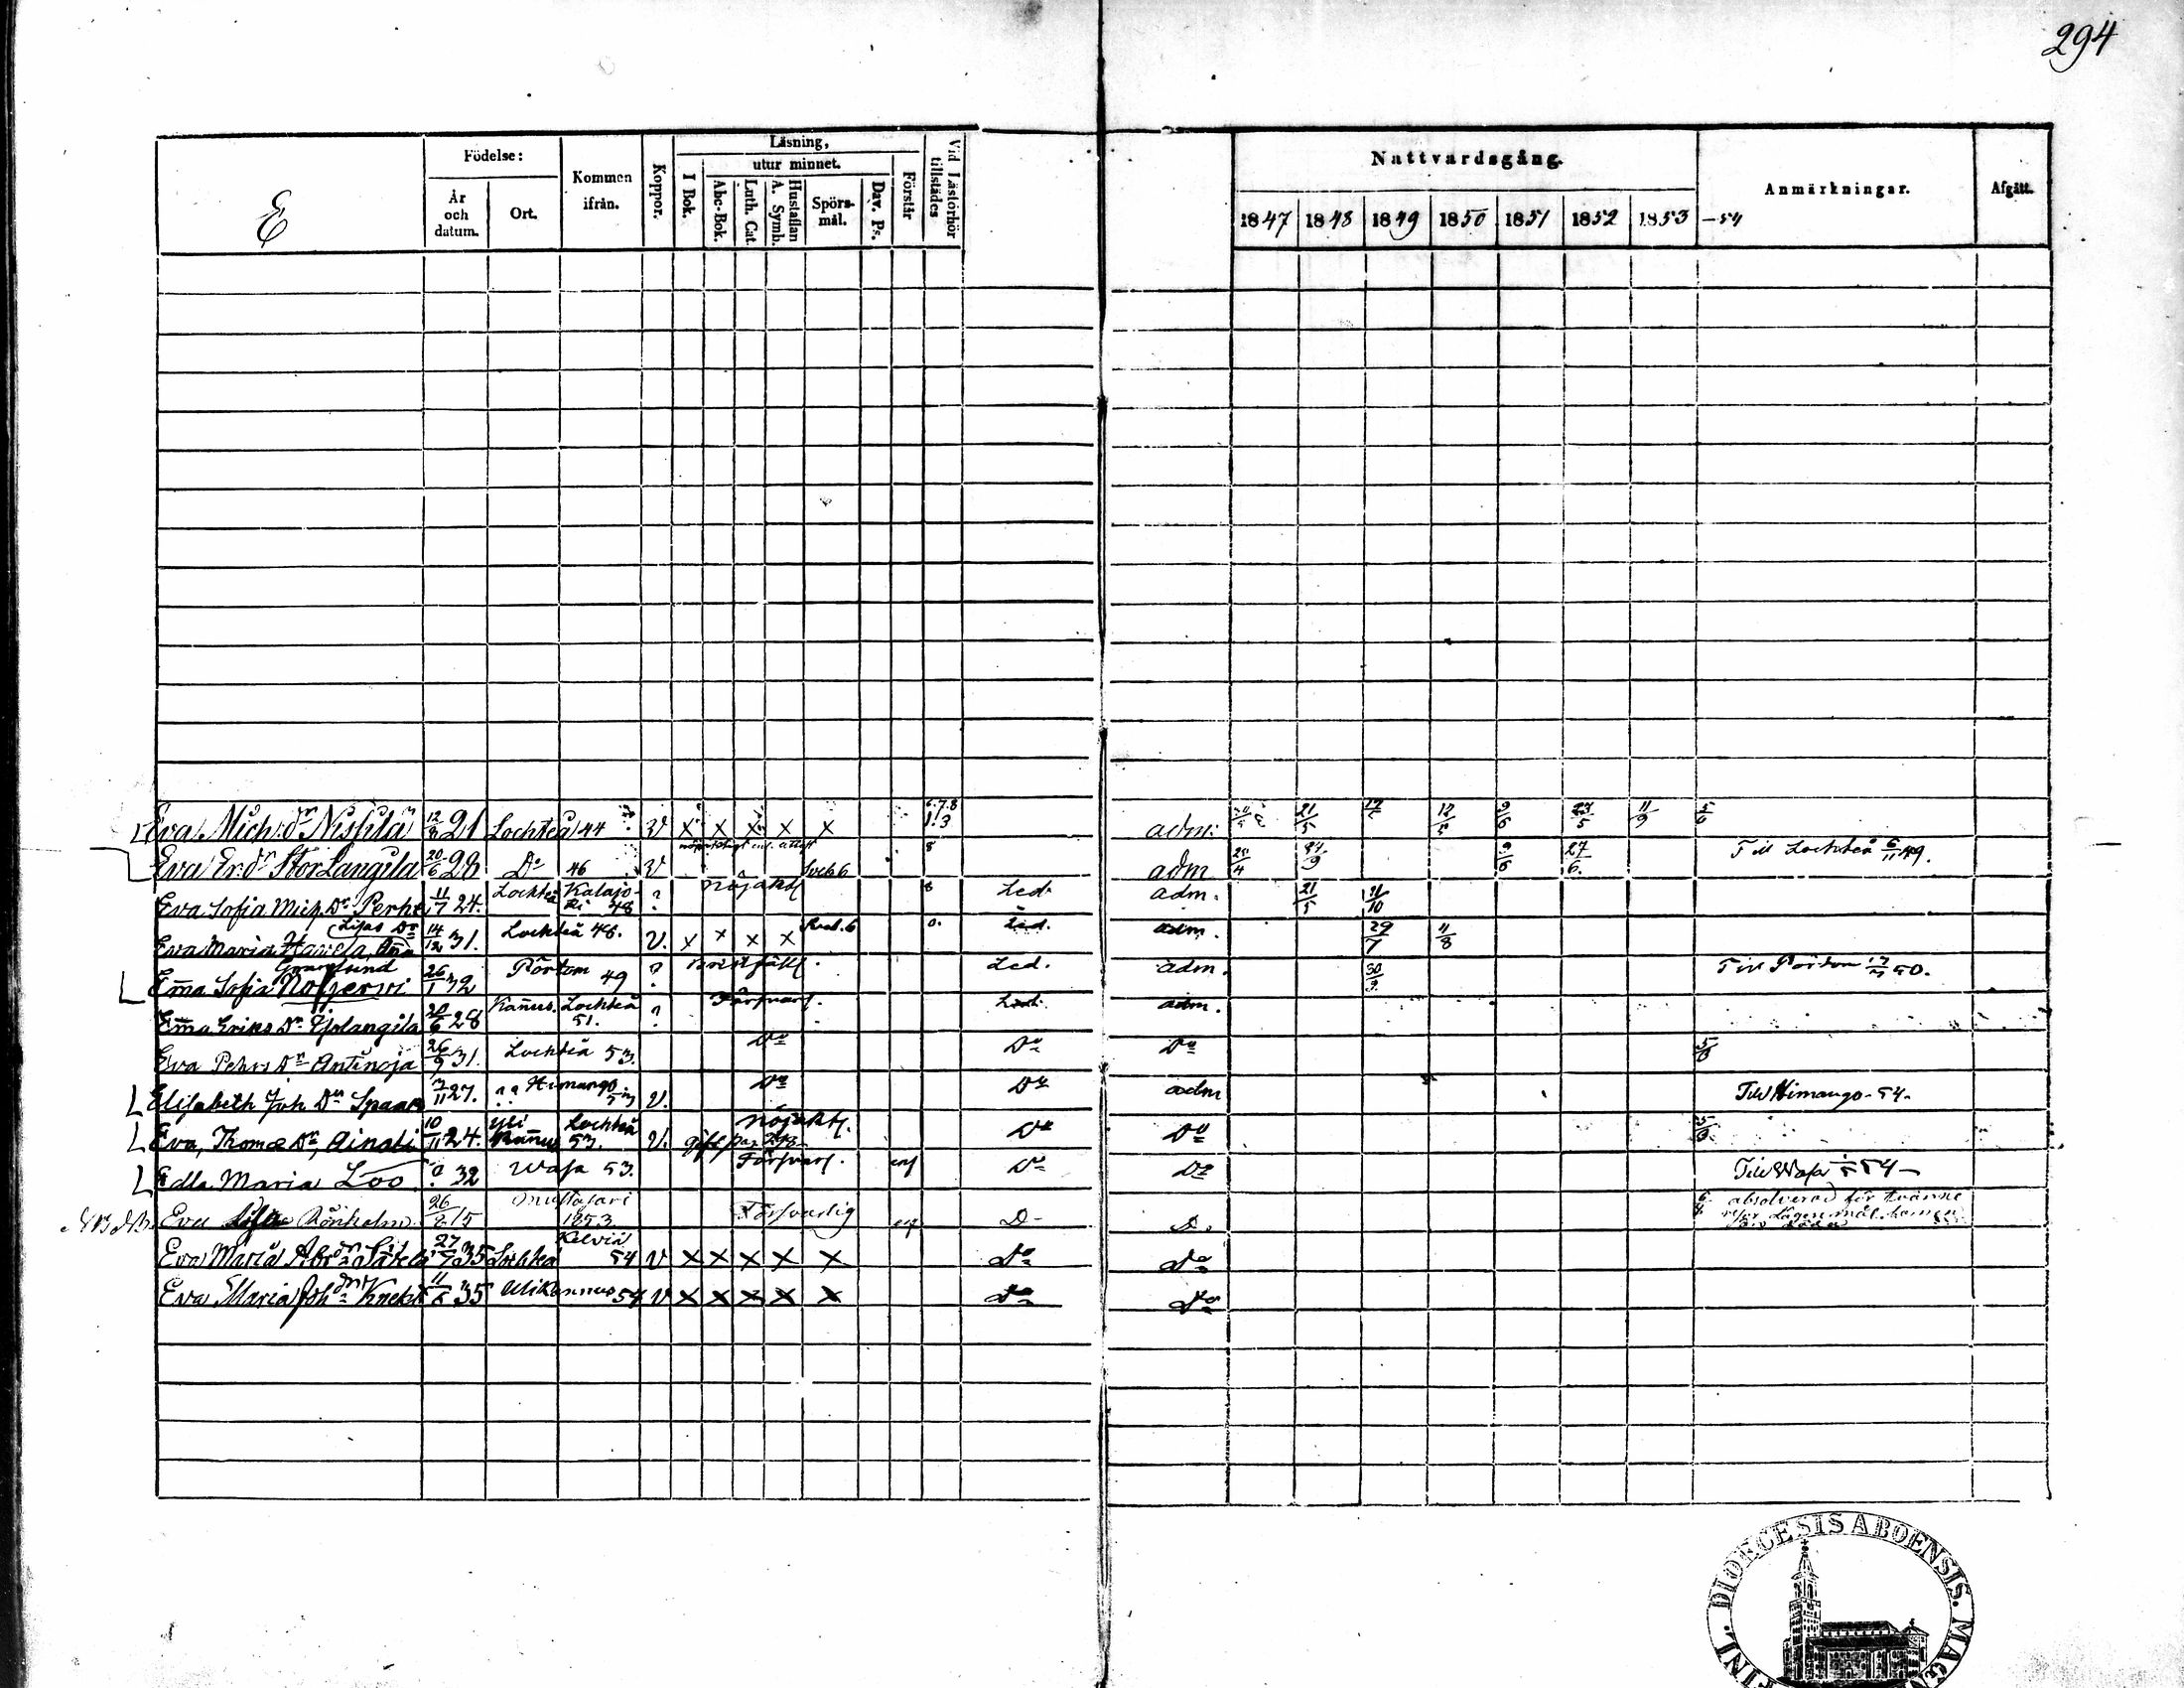 294
E
Födelse:
År och datum.
Ort.
Kommen ifrån.
Koppor.
Läsning,
utur minnet.
I Bok.
Abc-Bok.
Luth. Cat.
Hustaflan A. Symb.
Spörs-mål.
Dav. Ps.
Förstår
Vid Läsförhör tillstädes
Nattvardsgång.
1847 1848 1849 1850 1851 1852 1853 -54
Anmärkningar.
Afgått.
Eva Mich:dr Nissilä 12/8 21 Lochteå 44 V x x x x x 6.7.8 1.3 adm: 21/5 12/5 9/6 27/5 11/9 5/6
Eva Er:dr StorLangila 20/6 28 Do 46 V 8 adm 25/4 24/9 9/6 27/6. Till Lochteå 6/11 49.
Eva Sofia Mich. Dr Perhe 11/7 24. Lochteå Kalajoki 48 ? nöjaktl 8 Led. adm. 21/5 21/10
Eva Maria Havela, 14/12 31. Lochteå 46. V. x x x x 0. Led. adm. 29/7 11/8
Em̄a Sofia 26/1 32 Pörtom 49 ? bristfälll. Led. adm. 30/9. Till Pörtom 17/7 50.
Em̄a Eriks Dr Ejolangila 20/6 28 Kan̄us. Lochteå 51. ? Försvarl. Led. adm.
Eva Pehrs Dr Antinoja 26/9 31. Lochteå 53. Do Do Do 5/6
Elisabeth Joh Dr Spaan 7/11 27. ?? Himango 53 V. Do Do adm Till Himango -54-
Eva, Thomæ Dr, Ainali 10/11 24. Yli Kan̄us Lochteå 53. V. nöjaktl. Do Do 5/6.
Edla Maria Loo 32 Wasa 53. Försvarl. Do Do Till Wasa 54-
NB NB. Eva Lisa Rönholm 26/8 15 Mustasari 1853. Försvarlig D- Do absolverad för tvänne
Eva Maria Abr:dr 27/7 35 Lochteå Kelviå 54 V x x x x x Do Do
Eva Maria Joh:dr Knekt 11/6 35 Ulikannus 54 V x x x x x Do Do
FINL. DIOECESIS ABOENSIS. MAGN